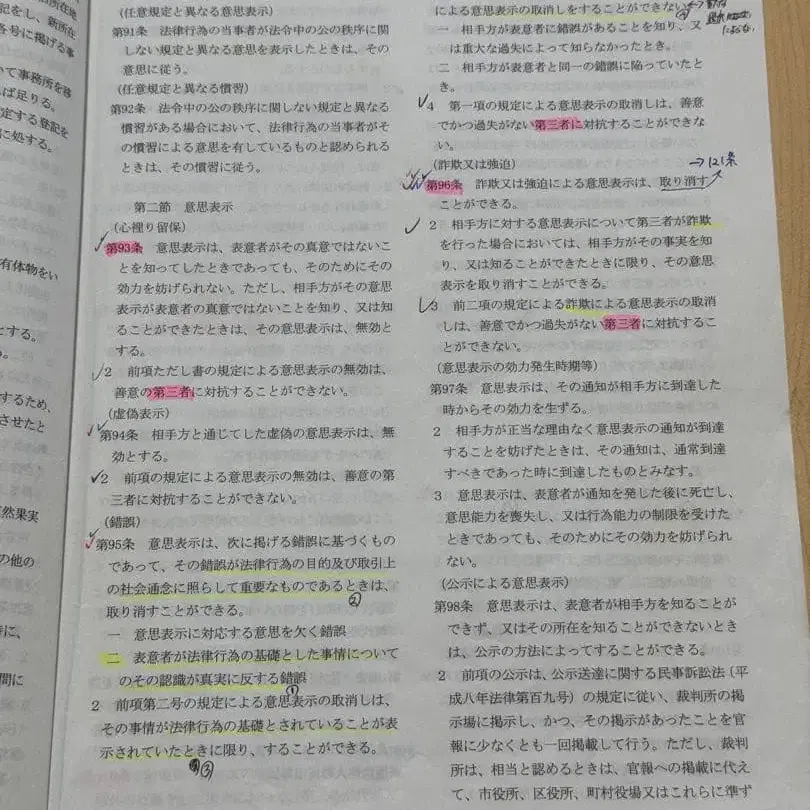 新所在地
記をし、新所在
各号に掲げる事
いて事務所を移
ば足りる。
定する登記を
に処する。
有体物をい
とする。
するため、
させたと
然果実
の他の
間に
(任意規定と異なる意思表示)
第91条 法律行為の当事者が法令中の公の秩序に関
しない規定と異なる意思を表示したときは、その
意思に従う。
(任意規定と異なる慣習)
第92条 法令中の公の秩序に関しない規定と異なる
慣習がある場合において、法律行為の当事者がそ
の慣習による意思を有しているものと認められる
ときは、その慣習に従う。
第二節 意思表示
(心裡留保)
第93条 意思表示は、表意者がその真意ではないこ
とを知ってしたときであっても、そのためにその
効力を妨げられない。ただし、相手方がその意思
表示が表意者の真意ではないことを知り、又は知
ることができたときは、その意思表示は、無効と
する。
2 前項ただし書の規定による意思表示の無効は、
善意の第三者に対抗することができない。
(虚偽表示)
第94条 相手方と通じてした虚偽の意思表示は、無
効とする。
2 前項の規定による意思表示の無効は、善意の第
三者に対抗することができない。
(錯誤)
第95条 意思表示は、次に掲げる錯誤に基づくもの
であって、その錯誤が法律行為の目的及び取引上
の社会通念に照らして重要なものであるときは、
取り消すことができる。 ②
一 意思表示に対応する意思を欠く錯誤
二 表意者が法律行為の基礎とした事情について
のその認識が真実に反する錯誤
①
2 前項第二号の規定による意思表示の取消しは、
その事情が法律行為の基礎とされていることが表
示されていたときに限り、することができる。
③
による意思表示の取消しをすることができない。
④
一 相手方が表意者に錯誤があることを知り、又
は重大な過失によって知らなかったとき。
二 相手方が表意者と同一の錯誤に陥っていたと
き。
4 第一項の規定による意思表示の取消しは、善意
でかつ過失がない第三者に対抗することができな
い。
(詐欺又は強迫) →121条
第96条 詐欺又は強迫による意思表示は、取り消す
ことができる。
2 相手方に対する意思表示について第三者が詐欺
を行った場合においては、相手方がその事実を知
り、又は知ることができたときに限り、その意思
表示を取り消すことができる。
3 前二項の規定による詐欺による意思表示の取消
しは、善意でかつ過失がない第三者に対抗するこ
とができない。
(意思表示の効力発生時期等)
第97条 意思表示は、その通知が相手方に到達した
時からその効力を生ずる。
2 相手方が正当な理由なく意思表示の通知が到達
することを妨げたときは、その通知は、通常到達
すべきであった時に到達したものとみなす。
3 意思表示は、表意者が通知を発した後に死亡し、
意思能力を喪失し、又は行為能力の制限を受けた
ときであっても、そのためにその効力を妨げられ
ない。
(公示による意思表示)
第98条 意思表示は、表意者が相手方を知ることが
できず、又はその所在を知ることができないとき
は、公示の方法によってすることができる。
2 前項の公示は、公示送達に関する民事訴訟法(平
成八年法律第百九号)の規定に従い、裁判所の掲
示場に掲示し、かつ、その掲示があったことを官
報に少なくとも一回掲載して行う。ただし、裁判
所は、相当と認めるときは、官報への掲載に代え
て、市役所、区役所、町村役場又はこれらに準ず